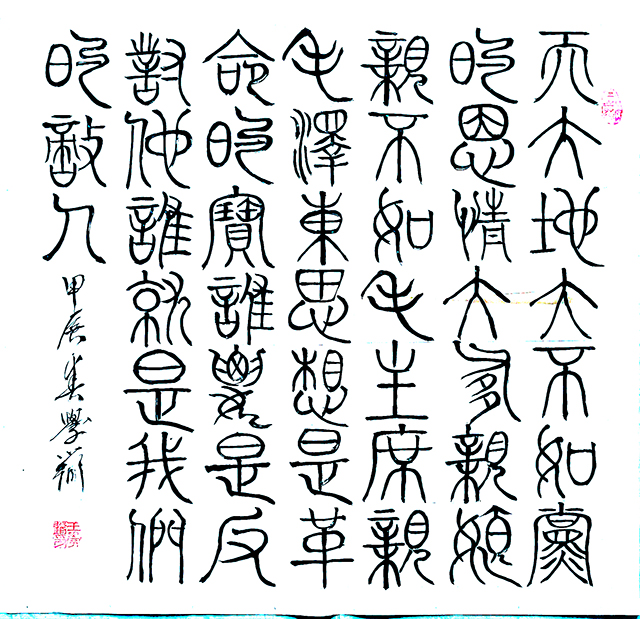 天大地大不如黨
的恩情大爹親娘
親不如毛主席親
毛澤東思想是革
命的寶誰要是反
對他誰就是我們
的敵人
甲辰 學